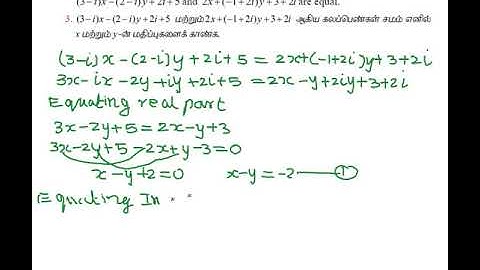 (3−i)x−(2−i)y+2i+5 and 2x+(−1+2i)y+3+2i are equal.
5. (3−i)x−(2−i)y+2i+5 மற்றும் 2x+(−1+2i)y+3+2i ஆகிய கலப்பெண்கள் சமம் எனில்
x மற்றும் y-ன் மதிப்புகளைக் காண்க.
(3-i)x-(2-i)y+2i+5 = 2x+(-1+2i)y+3+2i
3x-ix-2y+iy+2i+5 = 2x-y+2iy+3+2i
Equating real part
3x-2y+5=2x-y+3
3x-2y+5-2x+y-3=0
x-y+2=0 x-y=-2 ①
Equating Im